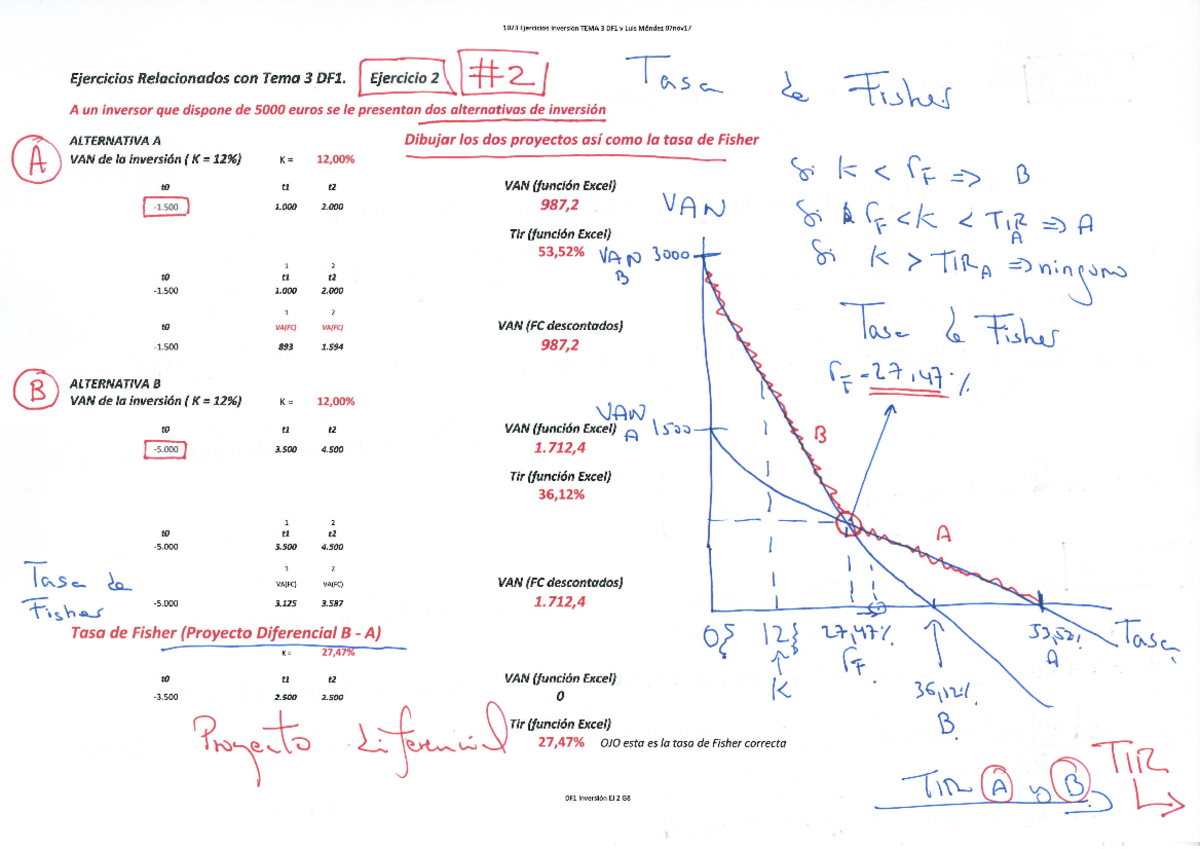 1023 Ejercicios Inversión TEMA 3 DF1 v Luis Méndez 07nov17
Ejercicios Relacionados con Tema 3 DF1. Ejercicio 2 #2
Tasa de Fisher
A un inversor que dispone de 5000 euros se le presentan dos alternativas de inversión
A
ALTERNATIVA A
Dibujar los dos proyectos así como la tasa de Fisher
VAN de la inversión ( K = 12%) K = 12,00%
t0 t1 t2 VAN (función Excel)
-1.500 1.000 2.000 987,2
Tir (función Excel)
53,52%
1 2
t0 t1 t2
-1.500 1.000 2.000
1 2
t0 VA(FC) VA(FC) VAN (FC descontados)
-1.500 893 1.594 987,2
B
ALTERNATIVA B
VAN de la inversión ( K = 12%) K = 12,00%
t0 t1 t2 VAN (función Excel)
-5.000 3.500 4.500 1.712,4
Tir (función Excel)
36,12%
1 2
t0 t1 t2
-5.000 3.500 4.500
1 2
VA(FC) VA(FC) VAN (FC descontados)
-5.000 3.125 3.587 1.712,4
Tasa de
Fisher
Tasa de Fisher (Proyecto Diferencial B - A)
K = 27,47%
t0 t1 t2 VAN (función Excel)
-3.500 2.500 2.500 0
Tir (función Excel)
27,47% OJO esta es la tasa de Fisher correcta
Proyecto diferencial
Si K < rF => B
Si rF < K < TIR A => A
Si K > TIR A => ninguno
Tasa de Fisher
rF = 27,47%
VAN
VAN B 3000
VAN A 1500
B
A
0% 12% 27,47% 53,52% Tasa
K rF 36,12% A
B.
TIR A y B TIR
DF1 Inversión EJ 2 G8